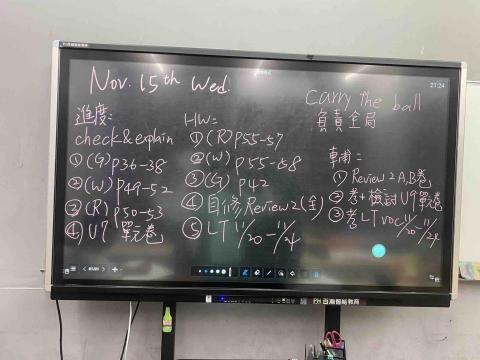 Nov. 15th Wed.
21:24
carry the ball
負責全局
進度:
check & explain
①(G) p36-38
②(W) p49-52
③(R) p50-53
④ U7 單元卷
HW:
①(R) p55-57
②(W) p55-58
③(G) p42
④ 自修 Review 2 (全)
⑤ LT 11/20-11/24
①Review 2 A,B卷
②考+檢討 U9單卷
③考 LT voc 11/20-11/24
百潮智能教育